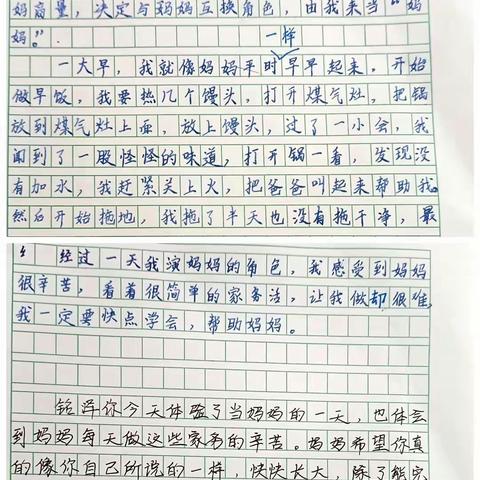 妈商量，决定与妈妈互换角色，由我来当“妈
妈”。
一样
一大早，我就像妈妈平时早早起来，开始
做早饭，我要热几个馒头，打开煤气灶，把锅
放到煤气灶上面，放上馒头，过了一小会，我
闻到了一股怪怪的味道，打开锅一看，发现没
有加水，我赶紧关上火，把爸爸叫起来帮助我。
然后开始拖地，我拖了半天也没有拖干净，最
经过一天我演妈妈的角色，我感受到妈妈
很辛苦，看着很简单的家务活，让我做却很难，
我一定要快点学会，帮助妈妈。
铭泽你今天体验了当妈妈的一天，也体会
到妈妈每天做这些家务的辛苦。妈妈希望你真
的像你自己所说的一样，快快长大，除了能完